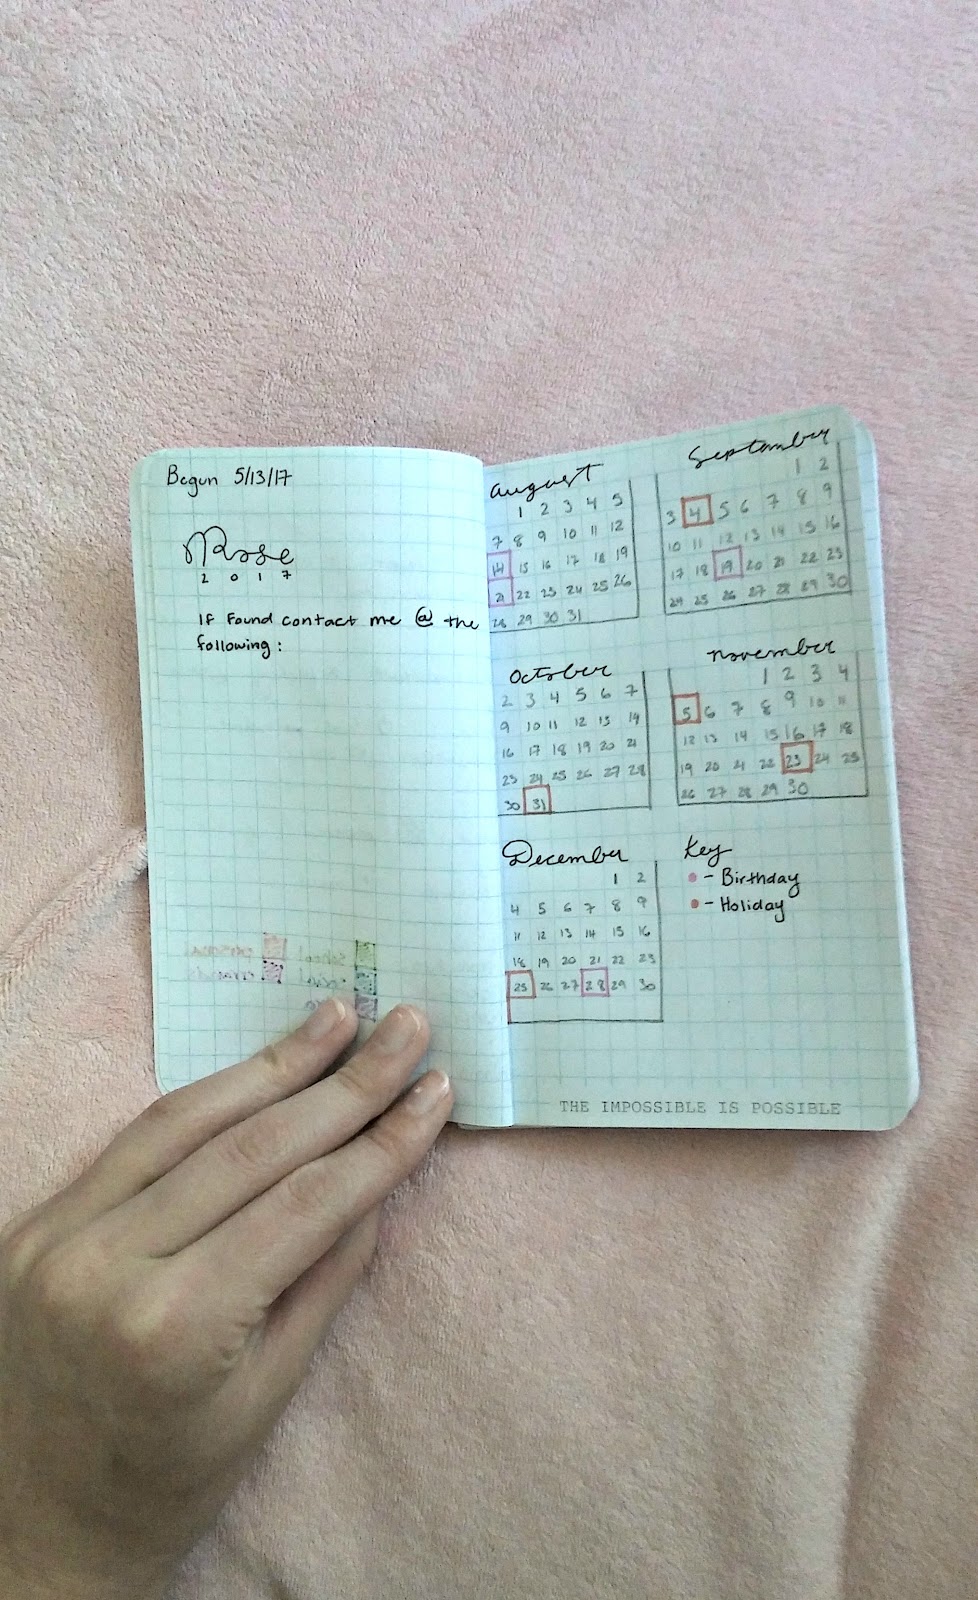 Begun 5/13/17
Rose
2 0 1 7
If found contact me @ the
following:
August
1 2 3 4 5
7 8 9 10 11 12
14 15 16 17 18 19
21 22 23 24 25 26
28 29 30 31
September
1 2
3 4 5 6 7 8 9
10 11 12 13 14 15 16
17 18 19 20 21 22 23
24 25 26 27 28 29 30
October
2 3 4 5 6 7
9 10 11 12 13 14
16 17 18 19 20 21
23 24 25 26 27 28
30 31
November
1 2 3 4
5 6 7 8 9 10 11
12 13 14 15 16 17 18
19 20 21 22 23 24 25
26 27 28 29 30
December
1 2
4 5 6 7 8 9
11 12 13 14 15 16
18 19 20 21 22 23
25 26 27 28 29 30
Key
- Birthday
- Holiday
THE IMPOSSIBLE IS POSSIBLE